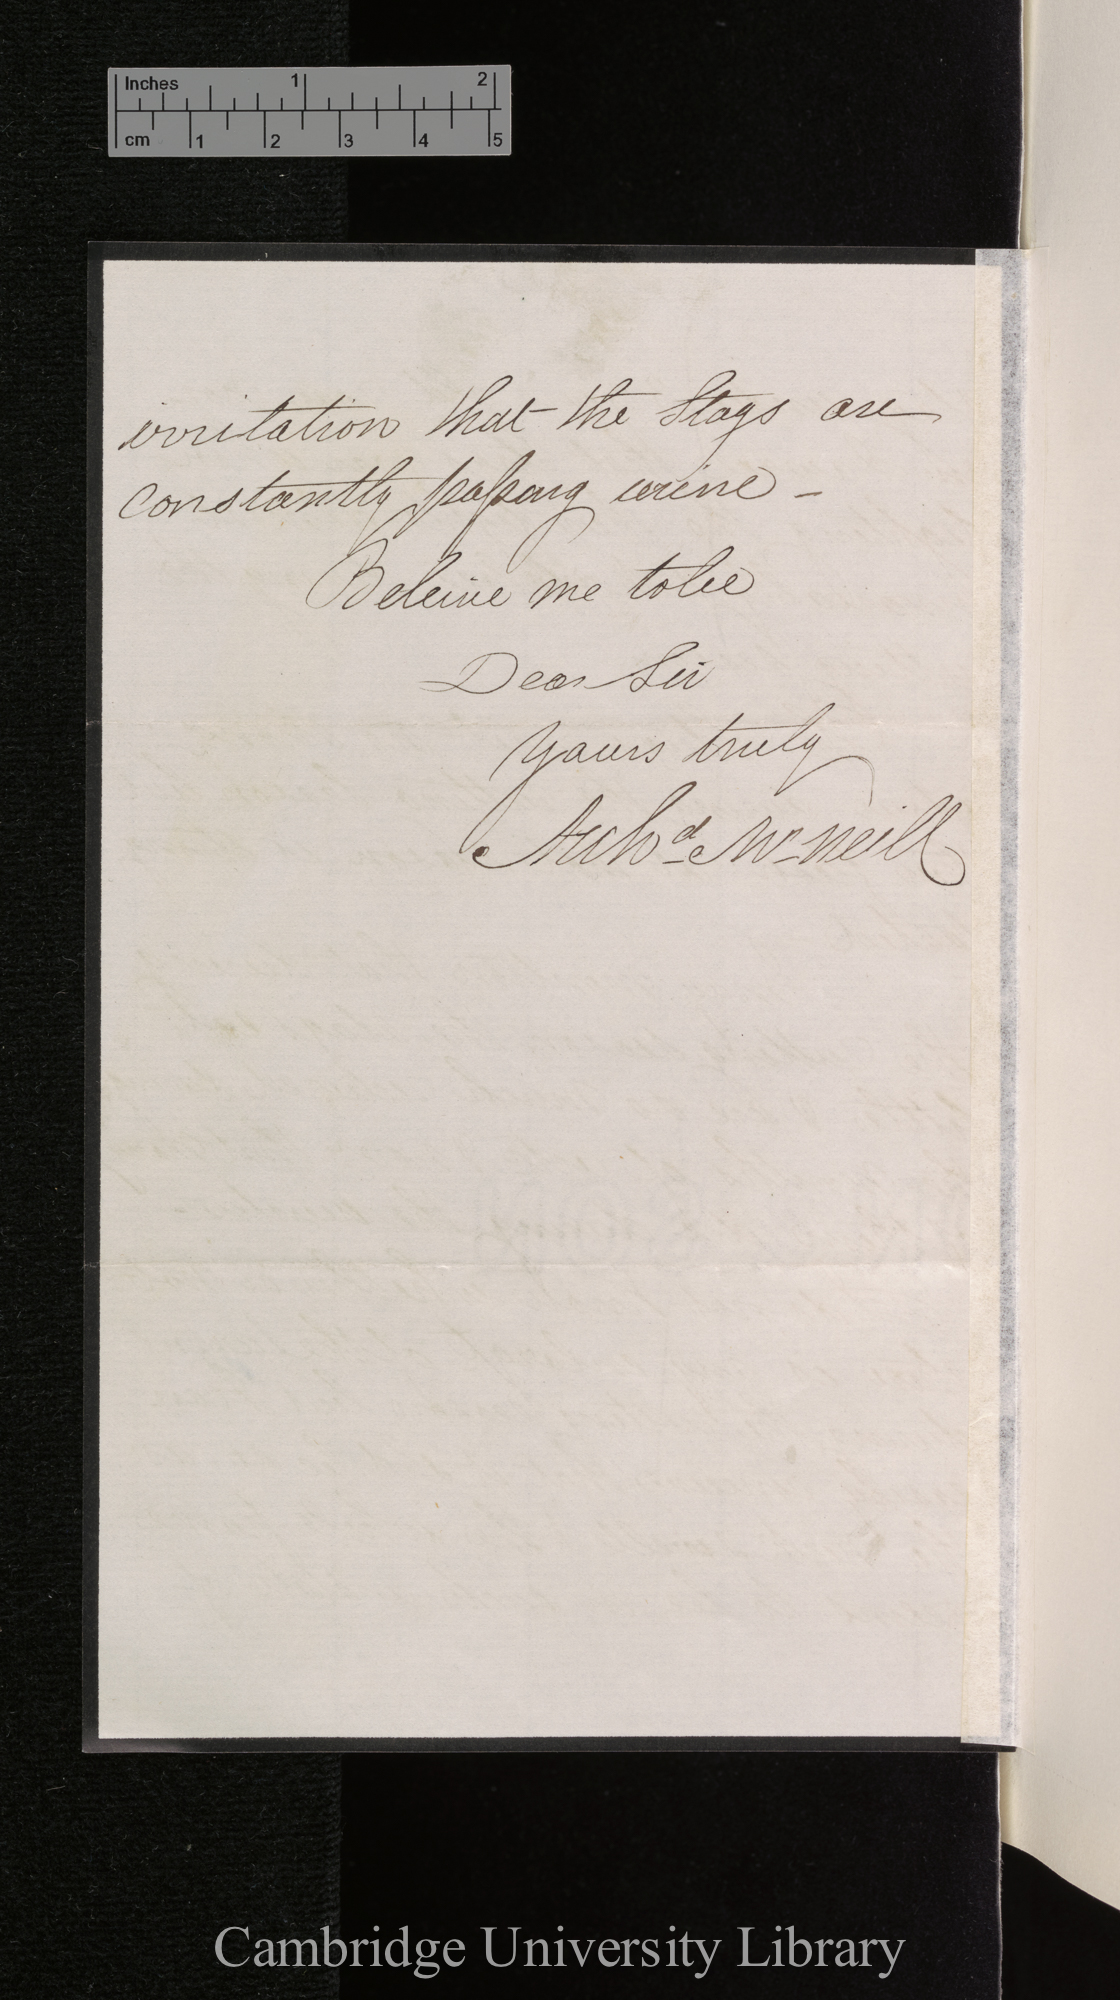 Inches 1 2
cm 1 2 3 4 5
irritation that the Stags are
constantly passing urine –
Beleive me to be
Dear Sir
Yours truly
Archd. McNeill
Cambridge University Library